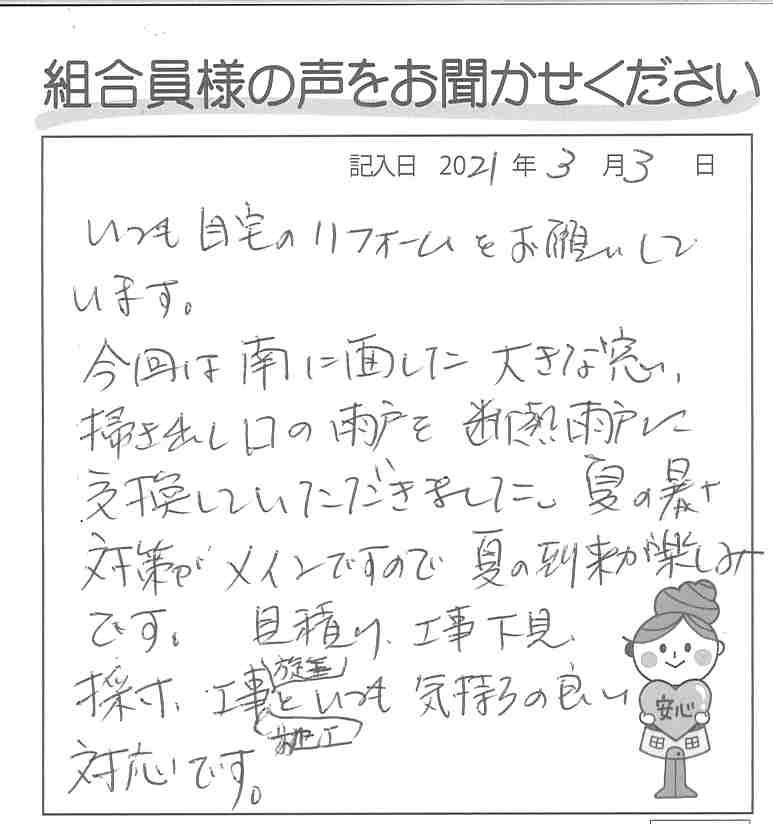 組合員様の声をお聞かせください
記入日 2021 年 3 月 3 日
いつも自宅のリフォームをお願いして
います。
今回は南に面した大きな窓、
掃き出し口の雨戸を断熱雨戸に
交換していただきました。夏の暑さ
対策がメインですので夏の到来が楽しみ
です。 見積り、工事下見、
採寸、工事といつも気持ちの良い
対応です。
安心